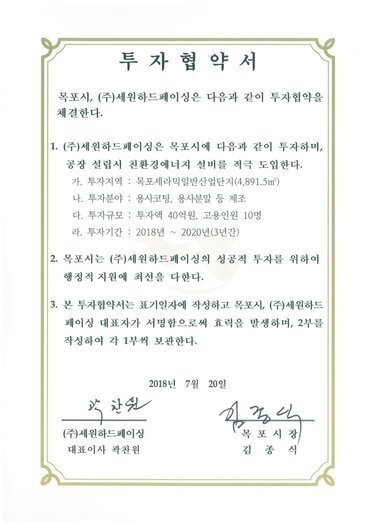 투 자 협 약 서
목포시, (주)세원하드페이싱은 다음과 같이 투자협약을
체결한다.
1. (주)세원하드페이싱은 목포시에 다음과 같이 투자하며,
공장 설립시 친환경에너지 설비를 적극 도입한다.
가. 투자지역 : 목포세라믹일반산업단지(4,891.5㎡)
나. 투자분야 : 용사코팅, 용사분말 등 제조
다. 투자규모 : 투자액 40억원, 고용인원 10명
라. 투자기간 : 2018년 ~ 2020년(3년간)
2. 목포시는 (주)세원하드페이싱의 성공적 투자를 위하여
행정적 지원에 최선을 다한다.
3. 본 투자협약서는 표기일자에 작성하고 목포시, (주)세원하드
페이싱 대표자가 서명함으로써 효력을 발생하며, 2부를
작성하여 각 1부씩 보관한다.
2018년 7월 20일
곽찬원 김종식
(주)세원하드페이싱 목 포 시 장
대표이사 곽찬원 김 종 식